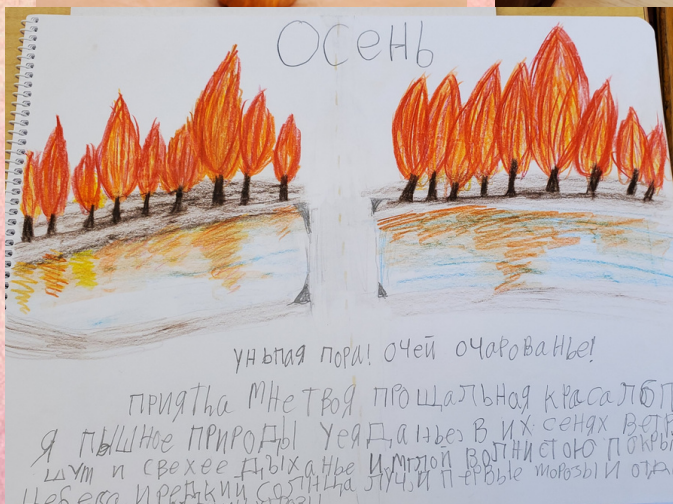 Осень
унылая пора! очей очарованье!
приятна мне твоя прощальная краса лбп
я пышное природы уеяданьез в их сенях ветр
шум и свежее дыханье и мглой волнистою покры
небеса и редкий солнца луч, и первые морозы и отда